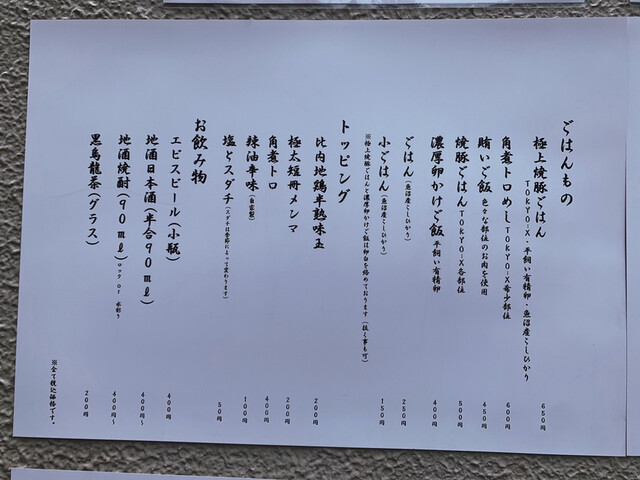 ごはんもの
極上焼豚ごはん 650円
TOKYO-X・平飼い有精卵・魚沼産こしひかり
角煮トロめし TOKYO-X希少部位 600円
賄いご飯 色々な部位のお肉を使用 450円
焼豚ごはん TOKYO-X各部位 500円
濃厚卵かけご飯 平飼い有精卵 400円
ごはん(魚沼産こしひかり) 250円
小ごはん(魚沼産こしひかり) 150円
※極上焼豚ごはんと濃厚卵かけご飯は卵白を絡めております(抜く事も可)
トッピング
比内地鶏半熟味玉 200円
極太短冊メンマ 200円
角煮トロ 400円
辣油辛味(自家製) 100円
塩とスダチ(スダチは季節によって変わります) 50円
お飲み物
エビスビール(小瓶) 400円
地酒日本酒(半合90ml) 400円〜
地酒焼酎(90ml) ロック or 水割り 400円〜
黒烏龍茶(グラス) 200円
※全て税込価格です。